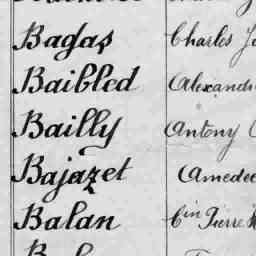 Bagas Charles
Baibled Alexand
Bailly Antony
Bajazet Amedee
Balan Cin Pierre